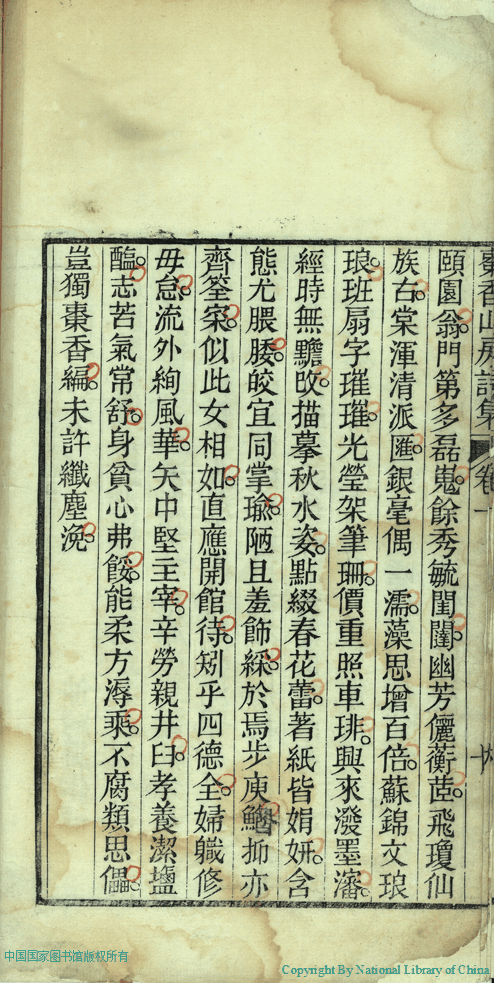 棗香山房詩集 卷一
頤園翁門第多磊嵬餘秀毓閨闥幽芳儷蘅茝飛瓊仙
族右棠渾清派匯銀毫偶一濡藻思增百倍蘇錦文琅
琅班扇字璀璀光瑩架筆珊價重照車琲興來潑墨瀋
經時無黵改描摹秋水姿點綴春花蕾著紙皆娟妍含
態尤腲腇皎宜同掌瑜陋且羞飾綵於焉步庾鮑抑亦
齊筌寀似此女相如直應開館待矧乎四德全婦職修
毋怠流外絢風華矢中堅主宰辛勞親井臼孝養潔鹽
醢志苦氣常舒身貧心弗餒能柔方溽乘不腐類思儡
豈獨棗香編未許纖塵浼
中国国家图书馆版权所有
Copyright By National Library of China